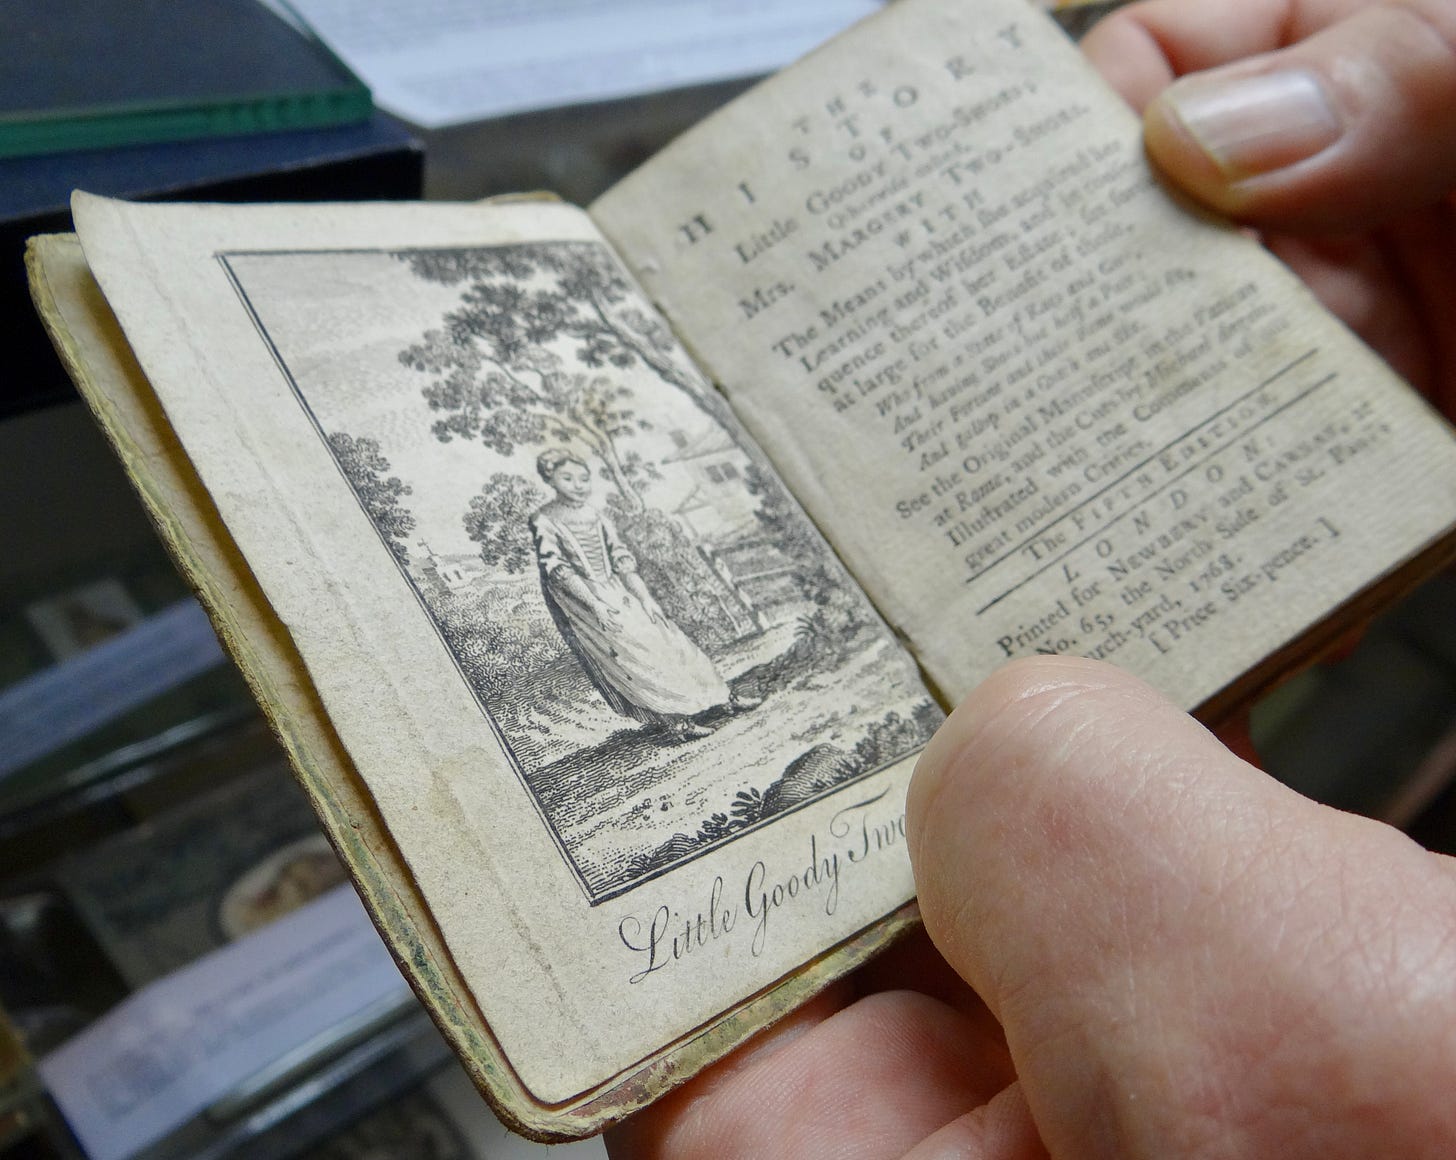 Little Goody Two
THE
HISTORY
OF
Little GOODY TWO-SHOES;
Otherwise called,
Mrs. MARGERY TWO-SHOES.
WITH
The Means by which she acquired her
Learning and Wisdom, and in conse-
quence thereof her Estate; set forth
at large for the Benefit of those,
Who from a State of Rags and Care,
And having Shoes but half a Pair;
Their Fortune and their Fame would fix,
And gallop in a Coach and Six.
See the Original Manuscript in the Vatican
at Rome, and the Cuts by Michael Angelo.
Illustrated with the Comments of our
great modern Critics.
The FIFTH EDITION.
LONDON:
Printed for NEWBERY and CARNAN, at
No. 65, the North Side of St. Paul's
urch-yard, 1768.
[ Price Six-pence. ]